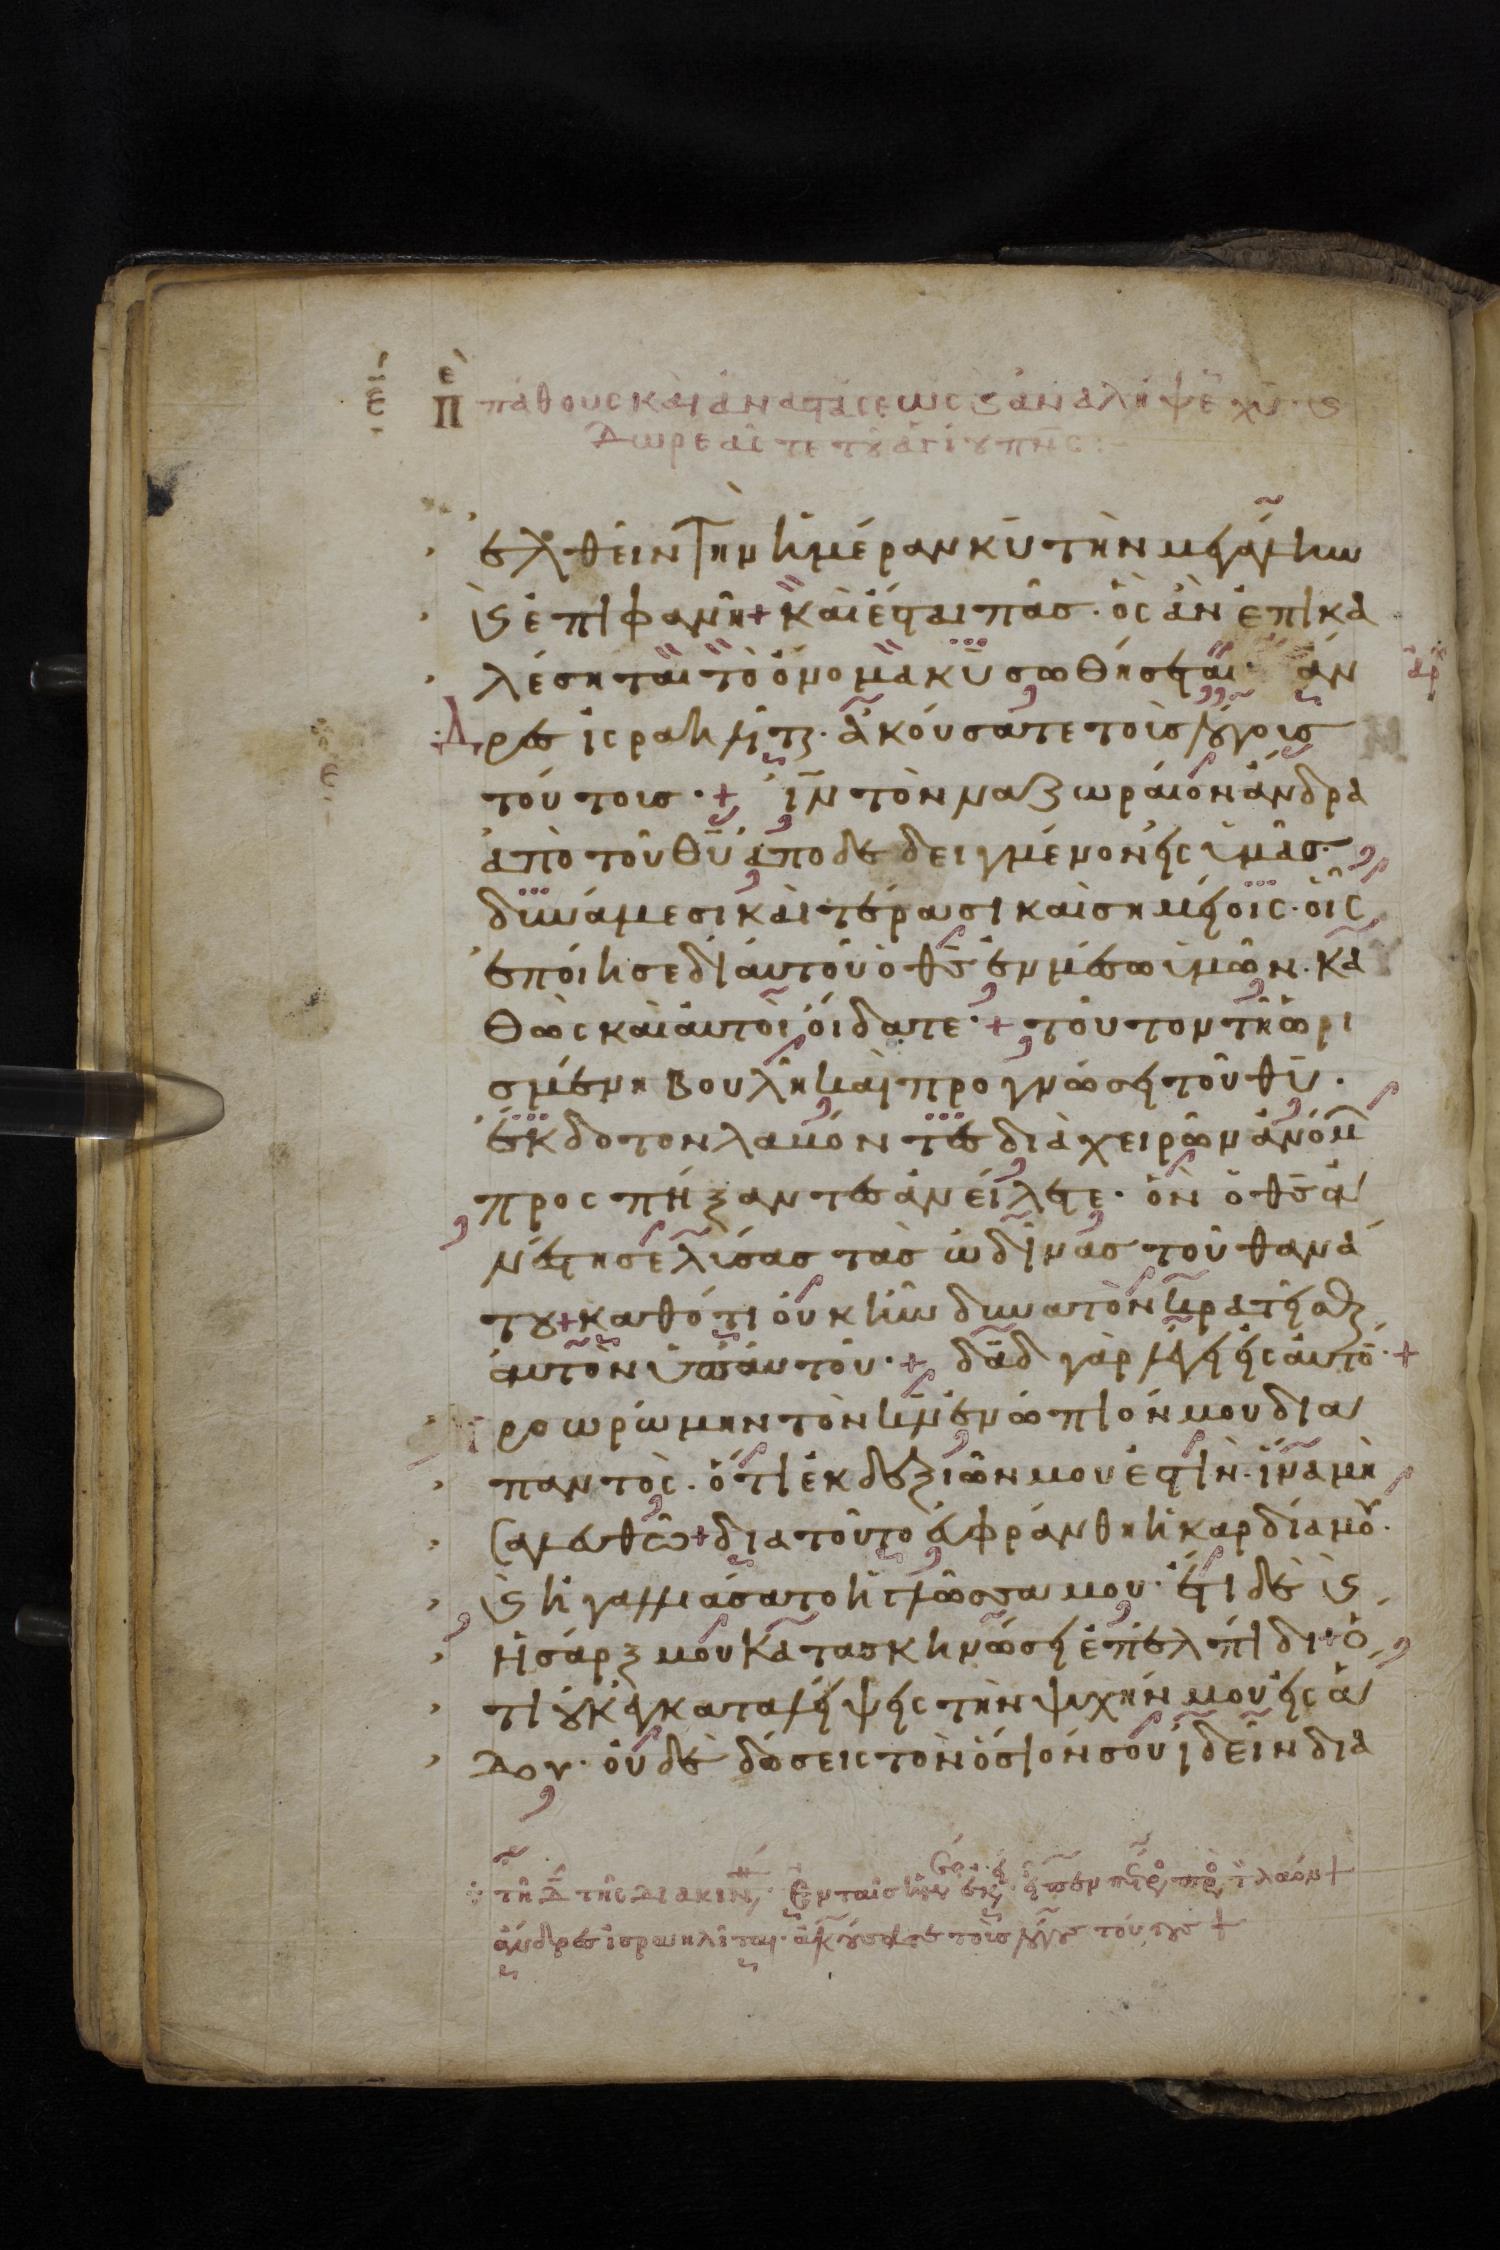 πάθους καὶ ἀναστάσεως καὶ ἀναλήψε χυ· καὶ
Δωρεᾶς τε τοῦ ἁγίου πνς:
ἐλθεῖν τὴν ἡμέραν κυ τὴν μεγάλην
καὶ ἐπιφανῆ + καὶ ἔσται πᾶσ· ὃς ἂν ἐπικα
λέσηται τὸ ὄνομα κυ σωθήσεται· ἄν
Δρεσ ἰσραηλῖται· ἀκούσατε τοὺσ λόγουσ
τούτουσ· + ιν τὸν ναζωραῖον ἄνδρα
ἀπὸ τοῦ θυ ἀποδεδειγμένον εἰς ὑμᾶσ·
δυνάμεσι καὶ τέρασι καὶ σημείοις· οἷς
ἐποίησε δι αὐτοῦ ὁ θς ἐν μέσω ὑμῶν· κα
θὼς καὶ αὐτοὶ οἴδατε· + τοῦτον τῆ ὡρι
σμένη βουλῆ καὶ προγνώσει τοῦ θυ·
ἔκδοτον λαβόντεσ διὰ χειρῶν ἀνόμ
προσπήξαντεσ ἀνείλετε· ὃν ὁ θς ἀ
νέστησε λύσας τὰσ ὠδῖνασ τοῦ θανά
του + καθότι οὐκ ἦν δυνατὸν κρατεῖσθαι
αὐτὸν ὑπ αὐτοῦ· + δαδ γὰρ λέγει εἰς αὐτό· +
ροωρώμην τὸν κν ἐνώπιόν μου δια
παντὸς· ὅτι ἐκ δεξιῶν μου ἐστὶν· ἵνα μὴ
σαλευθῶ + διὰ τοῦτο εὐφράνθη ἡ καρδία μου·
καὶ ἠγαλλιάσατο ἡ γλῶσσα μου· ἔτι δὲ καὶ
ἡ σάρξ μου κατασκηνώσει ἐπ ἐλπίδι + ὅ
τι οὐκ ἐγκαταλείψεις τὴν ψυχήν μου εἰς ἅ
Δου· οὐδὲ δώσεις τὸν ὅσιόν σου ἰδεῖν δια
τῆ Δ τῆς Διακιν, Ἐν ταῖς ἡμ ἐκ, εἶπεν πέτρος πρὸ τ λαόν +
ἄνδρεσ ἰσραηλῖται· ἀκούσατε τοὺσ λόγουσ τούτουσ +